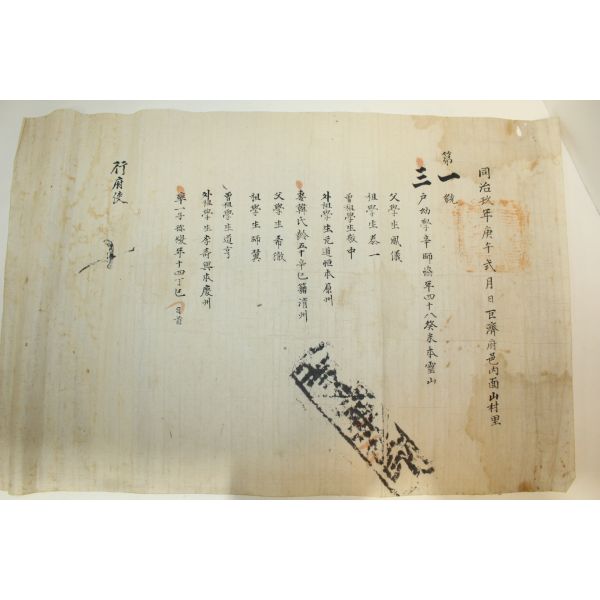 同治玖年庚午貳月日巨濟府邑內面山村里
第一號
三戶幼學辛師 年四十八癸未本靈山
父學生鳳儀
祖學生泰一
曾祖學生敬中
外祖學生 道恒本原州
妻韓氏齡五十辛巳籍淸州
父學生希徵
祖學生師冀
曾祖學生道亨
外祖學生李壽興本慶州
率一子 年十四丁巳
行府使